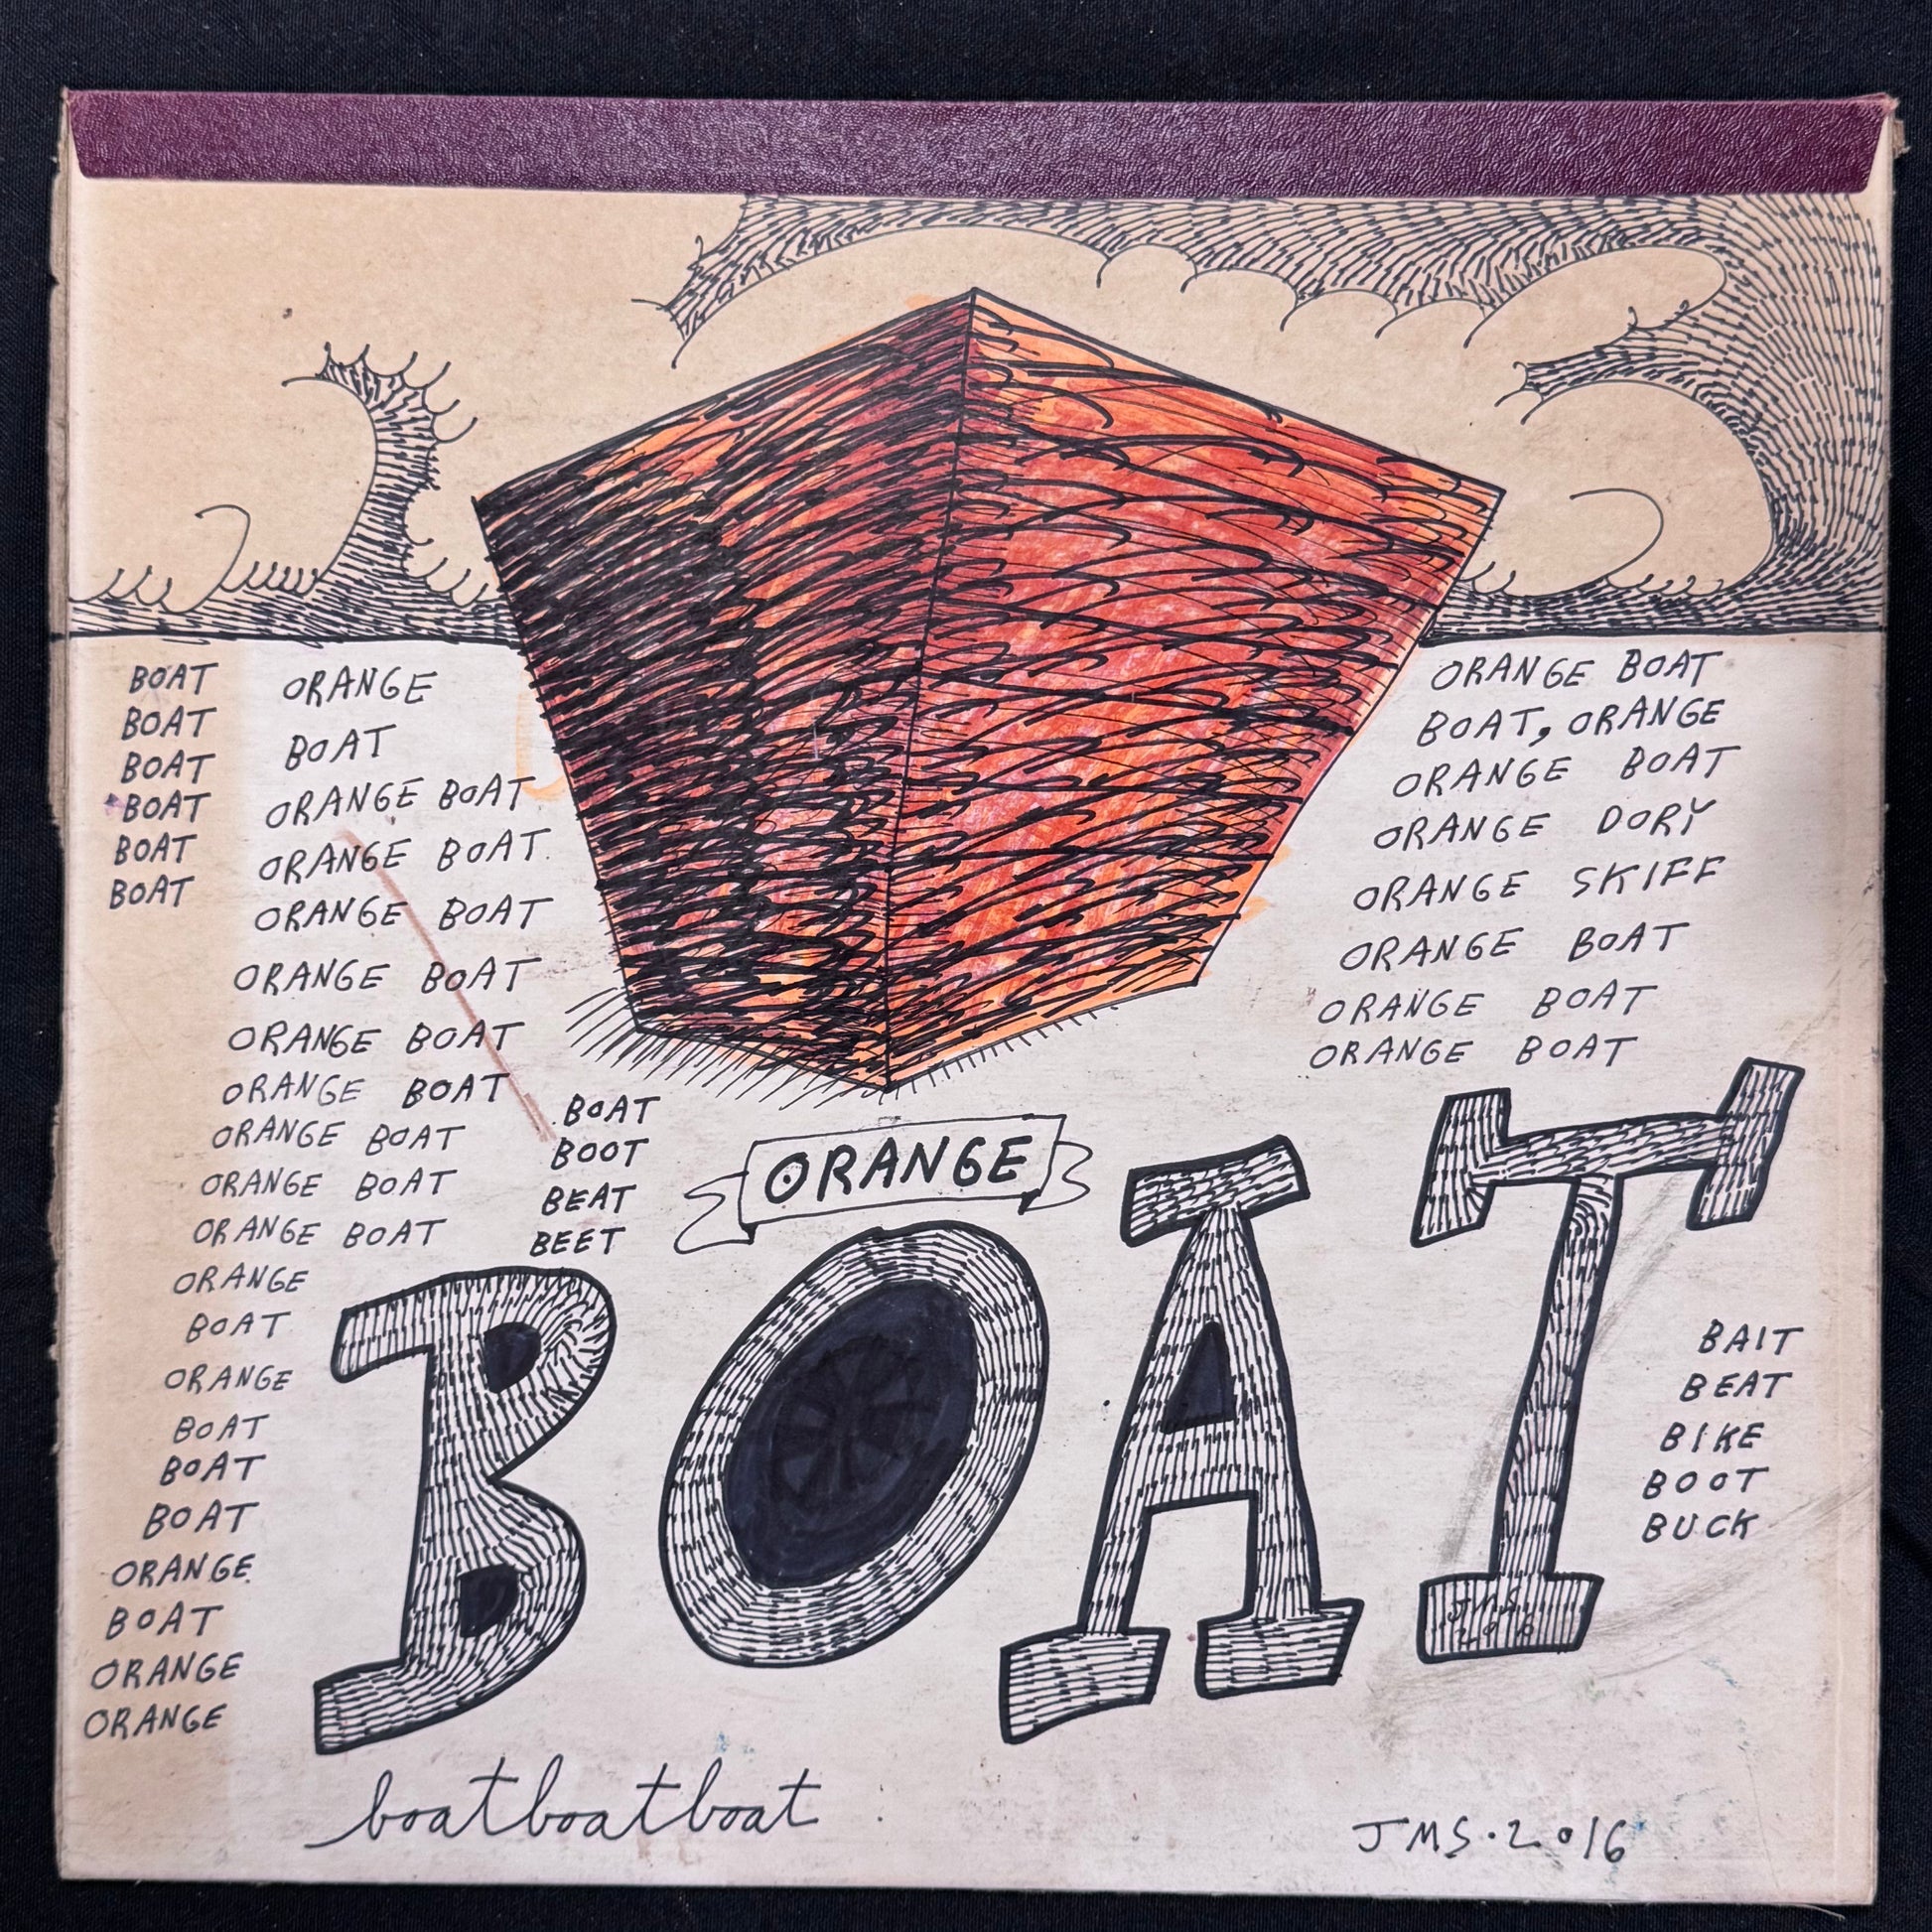 BOAT
BOAT
BOAT
BOAT
BOAT
BOAT
ORANGE
BOAT
ORANGE BOAT
ORANGE BOAT.
ORANGE BOAT
ORANGE BOAT
ORANGE BOAT
ORANGE BOAT
ORANGE BOAT
ORANGE BOAT
ORANGE BOAT
ORANGE
BOAT
ORANGE
BOAT
BOAT
BOAT
ORANGE
BOAT
ORANGE
ORANGE
BOAT
BOOT
BEAT
BEET
ORANGE BOAT
BOAT, ORANGE
ORANGE BOAT
ORANGE DORY
ORANGE SKIFF
ORANGE BOAT
ORANGE BOAT
ORANGE BOAT
ORANGE
BOAT
BAIT
BEAT
BIKE
BOOT
BUCK
JMS
boatboatboat
JMS.2016